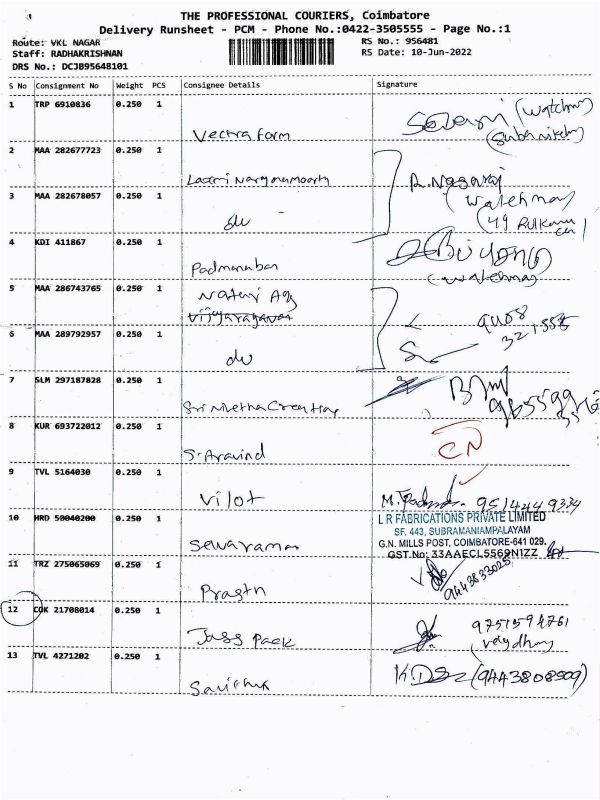 THE PROFESSIONAL COURIERS, Coimbatore
Delivery Runsheet - PCM - Phone No.:0422-3505555 - Page No.:1
Route: VKL NAGAR
RS No.: 956481
Staff: RADHAKRISHNAN
RS Date: 10-Jun-2022
DRS No.: DCJB95648101
S No Consignment No Weight PCS Consignee Details Signature
1 TRP 6910836 0.250 1 Vectra form (watchman)
2 MAA 282677723 0.250 1 Laxmi Narayanamoorth R. Nagaraj
3 MAA 282678057 0.250 1 du (watchman)
4 KDI 411867 0.250 1 Padmanaban
(watchman)
5 MAA 286743765 0.250 1 Natury Agy
6 MAA 289792957 0.250 1 du
7 SLM 297187828 0.250 1 Sri Nivetha Creation
8 KUR 693722012 0.250 1 S. Aravind CN
9 TVL 5164030 0.250 1 Vilot 9514449334
10 HRD 50040200 0.250 1 Sewaraman
L R FABRICATIONS PRIVATE LIMITED
SF. 443, SUBRAMANIAMPALAYAM
G.N. MILLS POST, COIMBATORE-641 029.
GST.No: 33AAECL5569N1ZZ
11 TRZ 275065069 0.250 1 9443833025
12 COK 21708014 0.250 1 Jass Pack 9751594761
13 TVL 4271202 0.250 1 (9443808909)